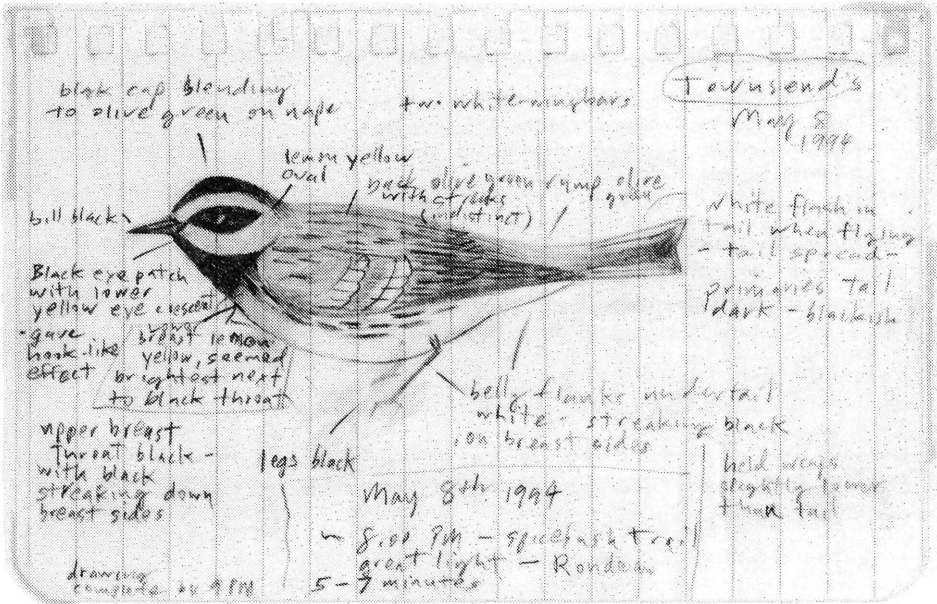 blak cap blending
to olive green on nape
two white wingbars
Townsend's
May 8
1994
lemon yellow
oval
back olive green
with streaks
(indistinct)
rump olive
green
bill black
white flash in
tail when flying
- tail spread -
primaries tail
dark - blackish
Black eye patch
with lower
yellow eye crescent
- gave
hook-like
effect
lower
breast lemon
yellow, seemed
brightest next
to black throat
belly flanks undertail
white - streaking black
on breast sides
upper breast
throat black -
with black
streaking down
breast sides
legs black
held wings
slightly lower
than tail
May 8th 1994
~ 8:00 PM - spicebush trail
great light - Rondeau
5-7 minutes
drawing
complete by 9 PM